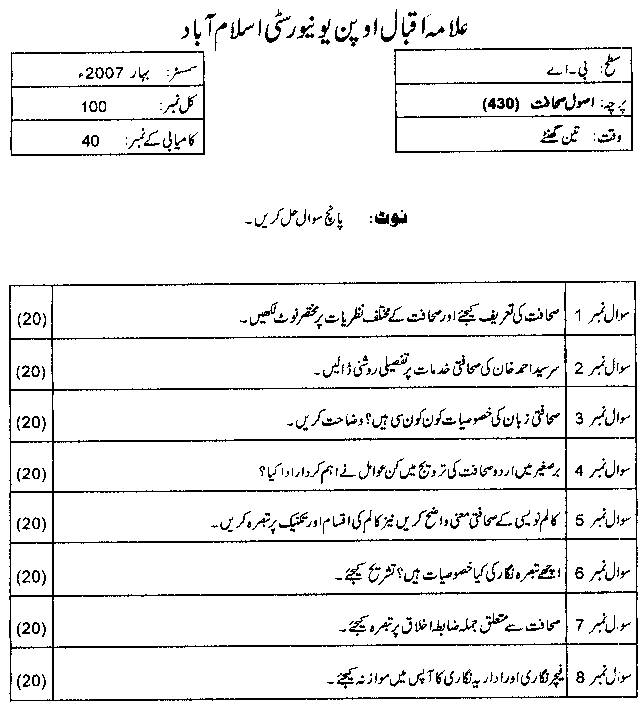 علامہ اقبال اوپن یونیورسٹی اسلام آباد
سطح: بی۔اے
پرچہ: اصول صحافت (430)
وقت: تین گھنٹے
سمسٹر: بہار 2007ء
کل نمبر: 100
کامیابی کے نمبر: 40
نوٹ: پانچ سوال حل کریں۔
سوال نمبر 1 صحافت کی تعریف کیجئے اور صحافت کے مختلف نظریات پر مختصر نوٹ لکھیں۔ (20)
سوال نمبر 2 سرسید احمد خان کی صحافتی خدمات پر تفصیلی روشنی ڈالیں۔ (20)
سوال نمبر 3 صحافتی زبان کی خصوصیات کون کون سی ہیں؟ وضاحت کریں۔ (20)
سوال نمبر 4 برصغیر میں اردو صحافت کی ترویج میں کن عوامل نے اہم کردار ادا کیا؟ (20)
سوال نمبر 5 کالم نویسی کے صحافتی معنی واضح کریں نیز کالم کی اقسام اور تکنیک پر تبصرہ کریں۔ (20)
سوال نمبر 6 اچھے تبصرہ نگار کی کیا خصوصیات ہیں؟ تشریح کیجئے۔ (20)
سوال نمبر 7 صحافت سے متعلق جملہ ضابطہ اخلاق پر تبصرہ کیجئے۔ (20)
سوال نمبر 8 فیچر نگاری اور اداریہ نگاری کا آپس میں موازنہ کیجئے۔ (20)